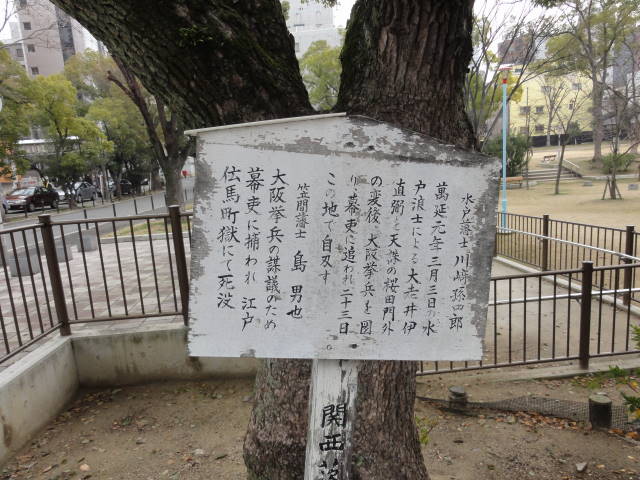 水戸藩士 川﨑孫四郎
萬延元年三月三日の水
戸浪士による大老井伊
直弼を天誅の桜田門外
の変後 大阪挙兵を図
り、幕吏に追われ二十三日
この地で自刃す
笠間藩士 島 男也
大阪挙兵の謀議のため
幕吏に捕われ 江戸
伝馬町獄にて死没
関西